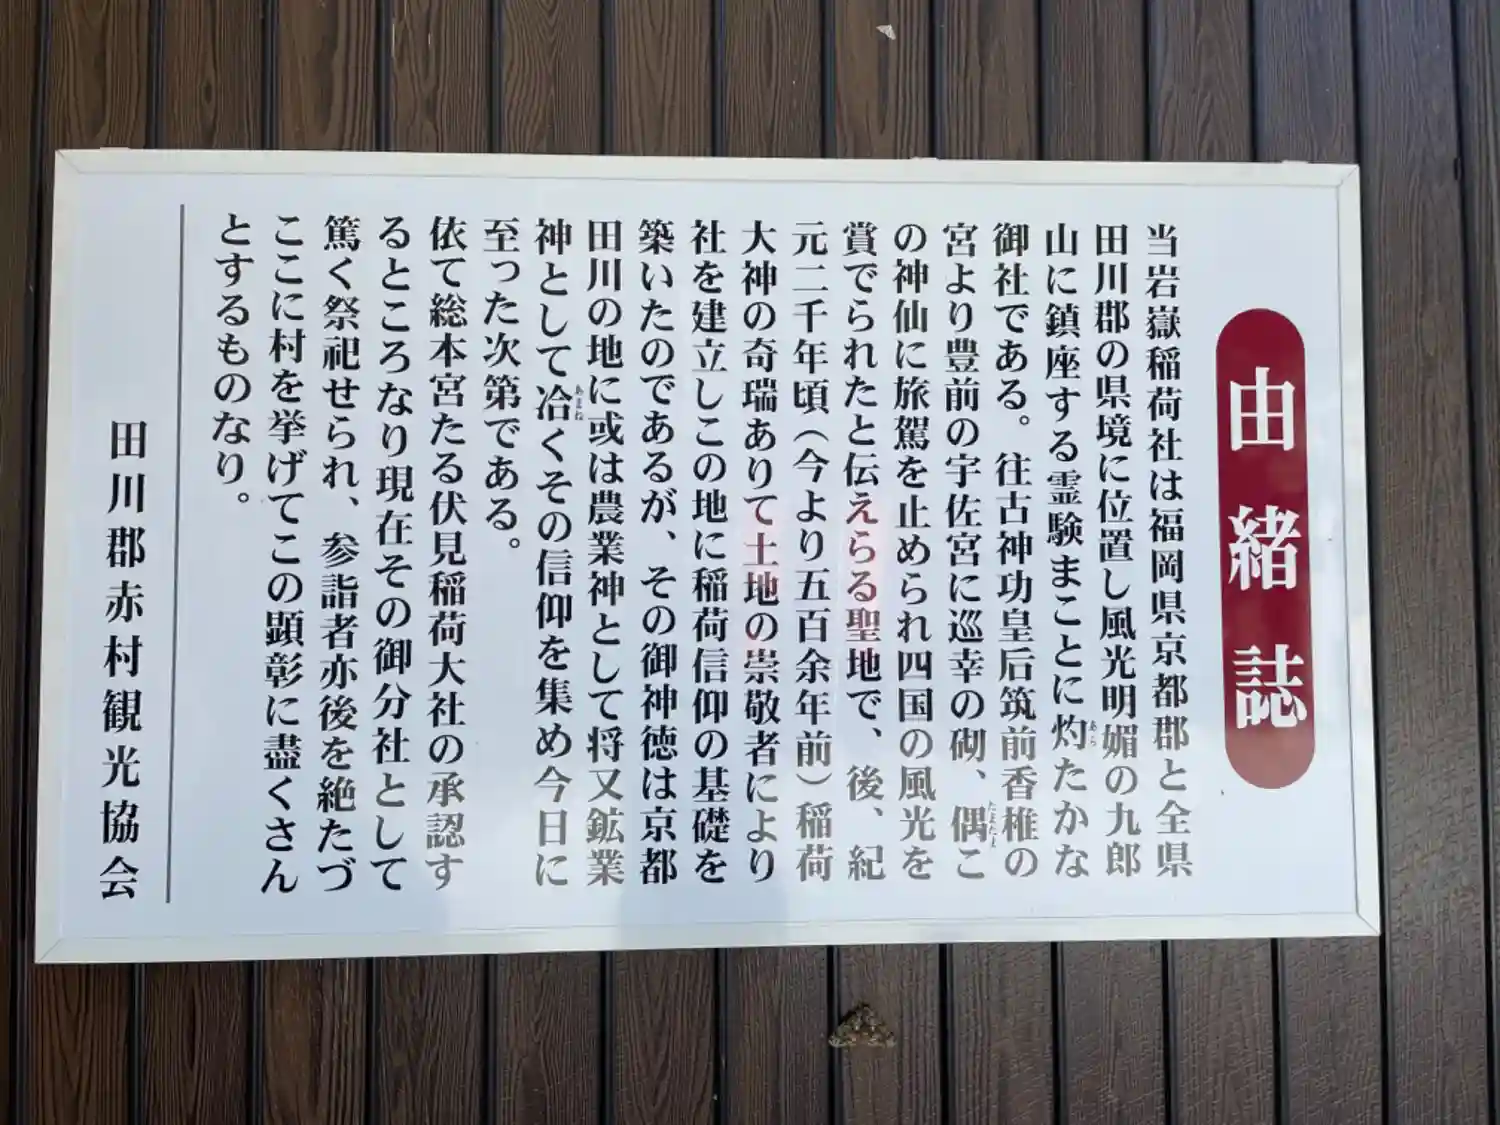 由緒誌
当岩嶽稲荷社は福岡県京都郡と全県
田川郡の県境に位置し風光明媚の九郎
山に鎮座する霊験まことに灼たかな
あら
御社である。往古神功皇后筑前香椎の
宮より豊前の宇佐宮に巡幸の砌、偶こ
たまたま
の神仙に旅駕を止められ四国の風光を
賞でられたと伝えらる聖地で、後、紀
元二千年頃(今より五百余年前)稲荷
大神の奇瑞ありて土地の崇敬者により
社を建立しこの地に稲荷信仰の基礎を
築いたのであるが、その御神徳は京都
田川の地に或は農業神として将又鉱業
神として冾くその信仰を集め今日に
あまね
至った次第である。
依て総本宮たる伏見稲荷大社の承認す
るところなり現在その御分社として
篤く祭祀せられ、参詣者亦後を絶たづ
ここに村を挙げてこの顕彰に盡くさん
とするものなり。
田川郡赤村観光協会